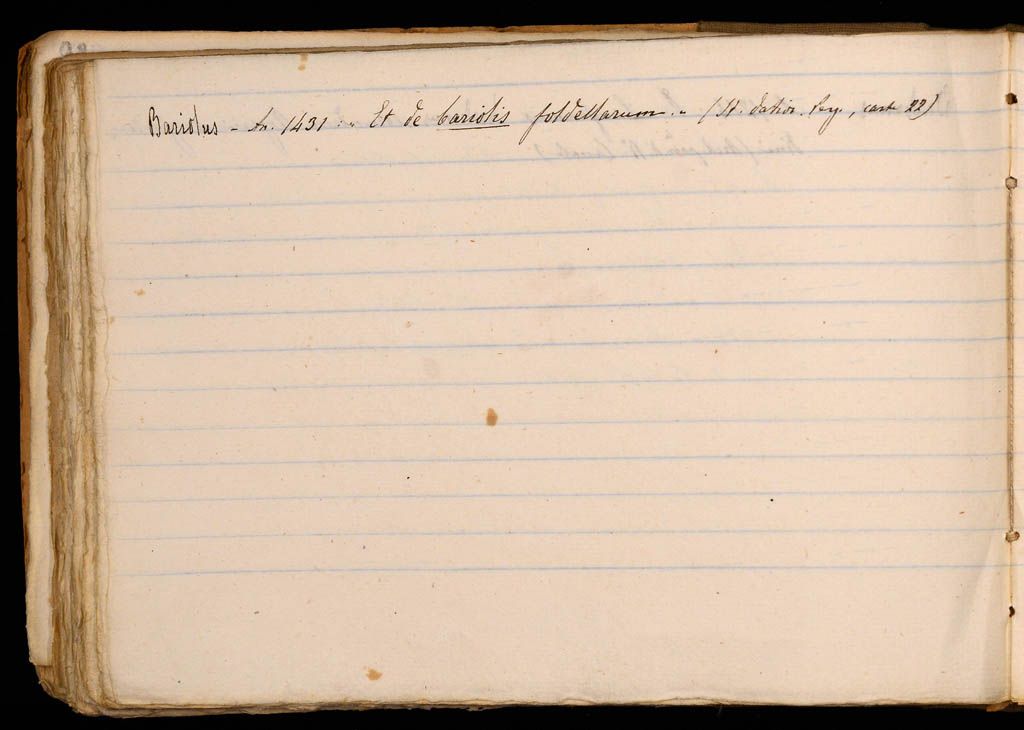 Bariolus - An. 1431: „ Et de bariolis foldellarum „ (St. dation. Reg., cart 22)